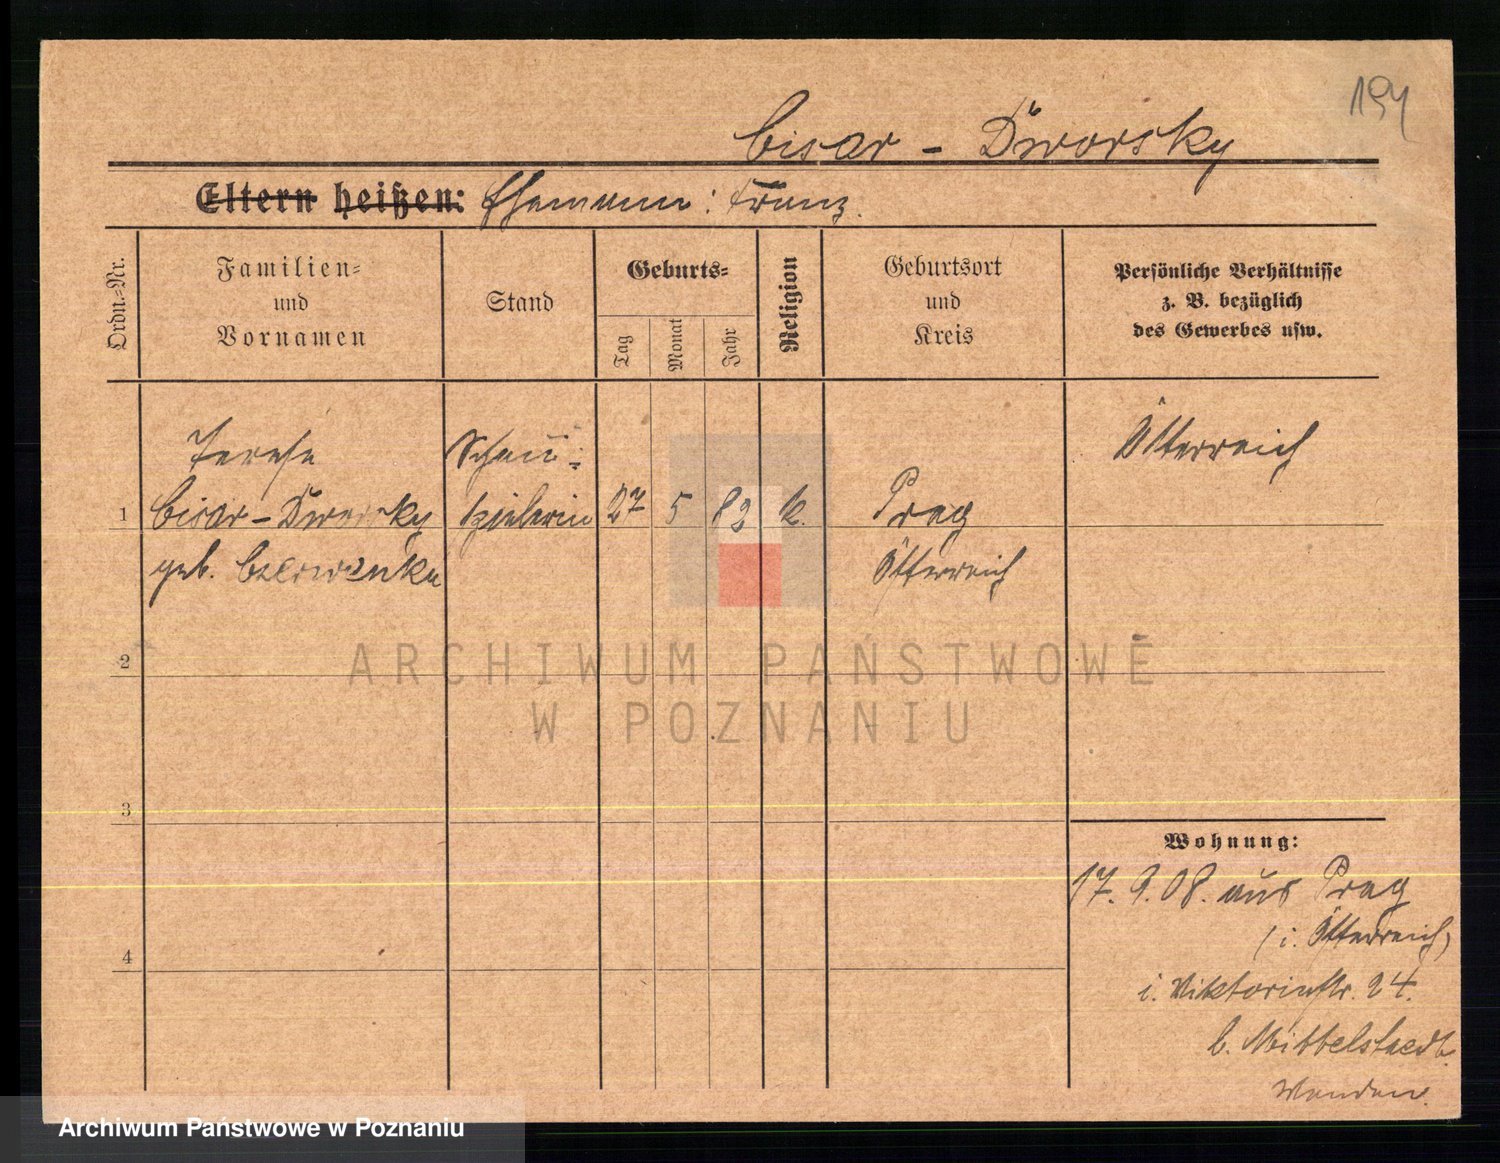 194
Cisar - Dworsky
Eltern heißen: Ehemann: Franz.
Ordn.-Nr.
Familien-
und
Vornamen
Stand
Geburts-
Tag
Monat
Jahr
Religion
Geburtsort
und
Kreis
Persönliche Verhältnisse
z. B. bezüglich
des Gewerbes usw.
1
Terese
Cisar - Dworsky
geb. Czerwenka
Schau-
spielerin
27
5
82
k.
Prag
Österreich
Österreich
2
3
4
Wohnung:
17. 9. 08. aus Prag
(i. Österreich)
i. Viktoriastr. 24.
b. Mittelstaedt.
ARCHIWUM PAŃSTWOWE
W POZNANIU
Archiwum Państwowe w Poznaniu